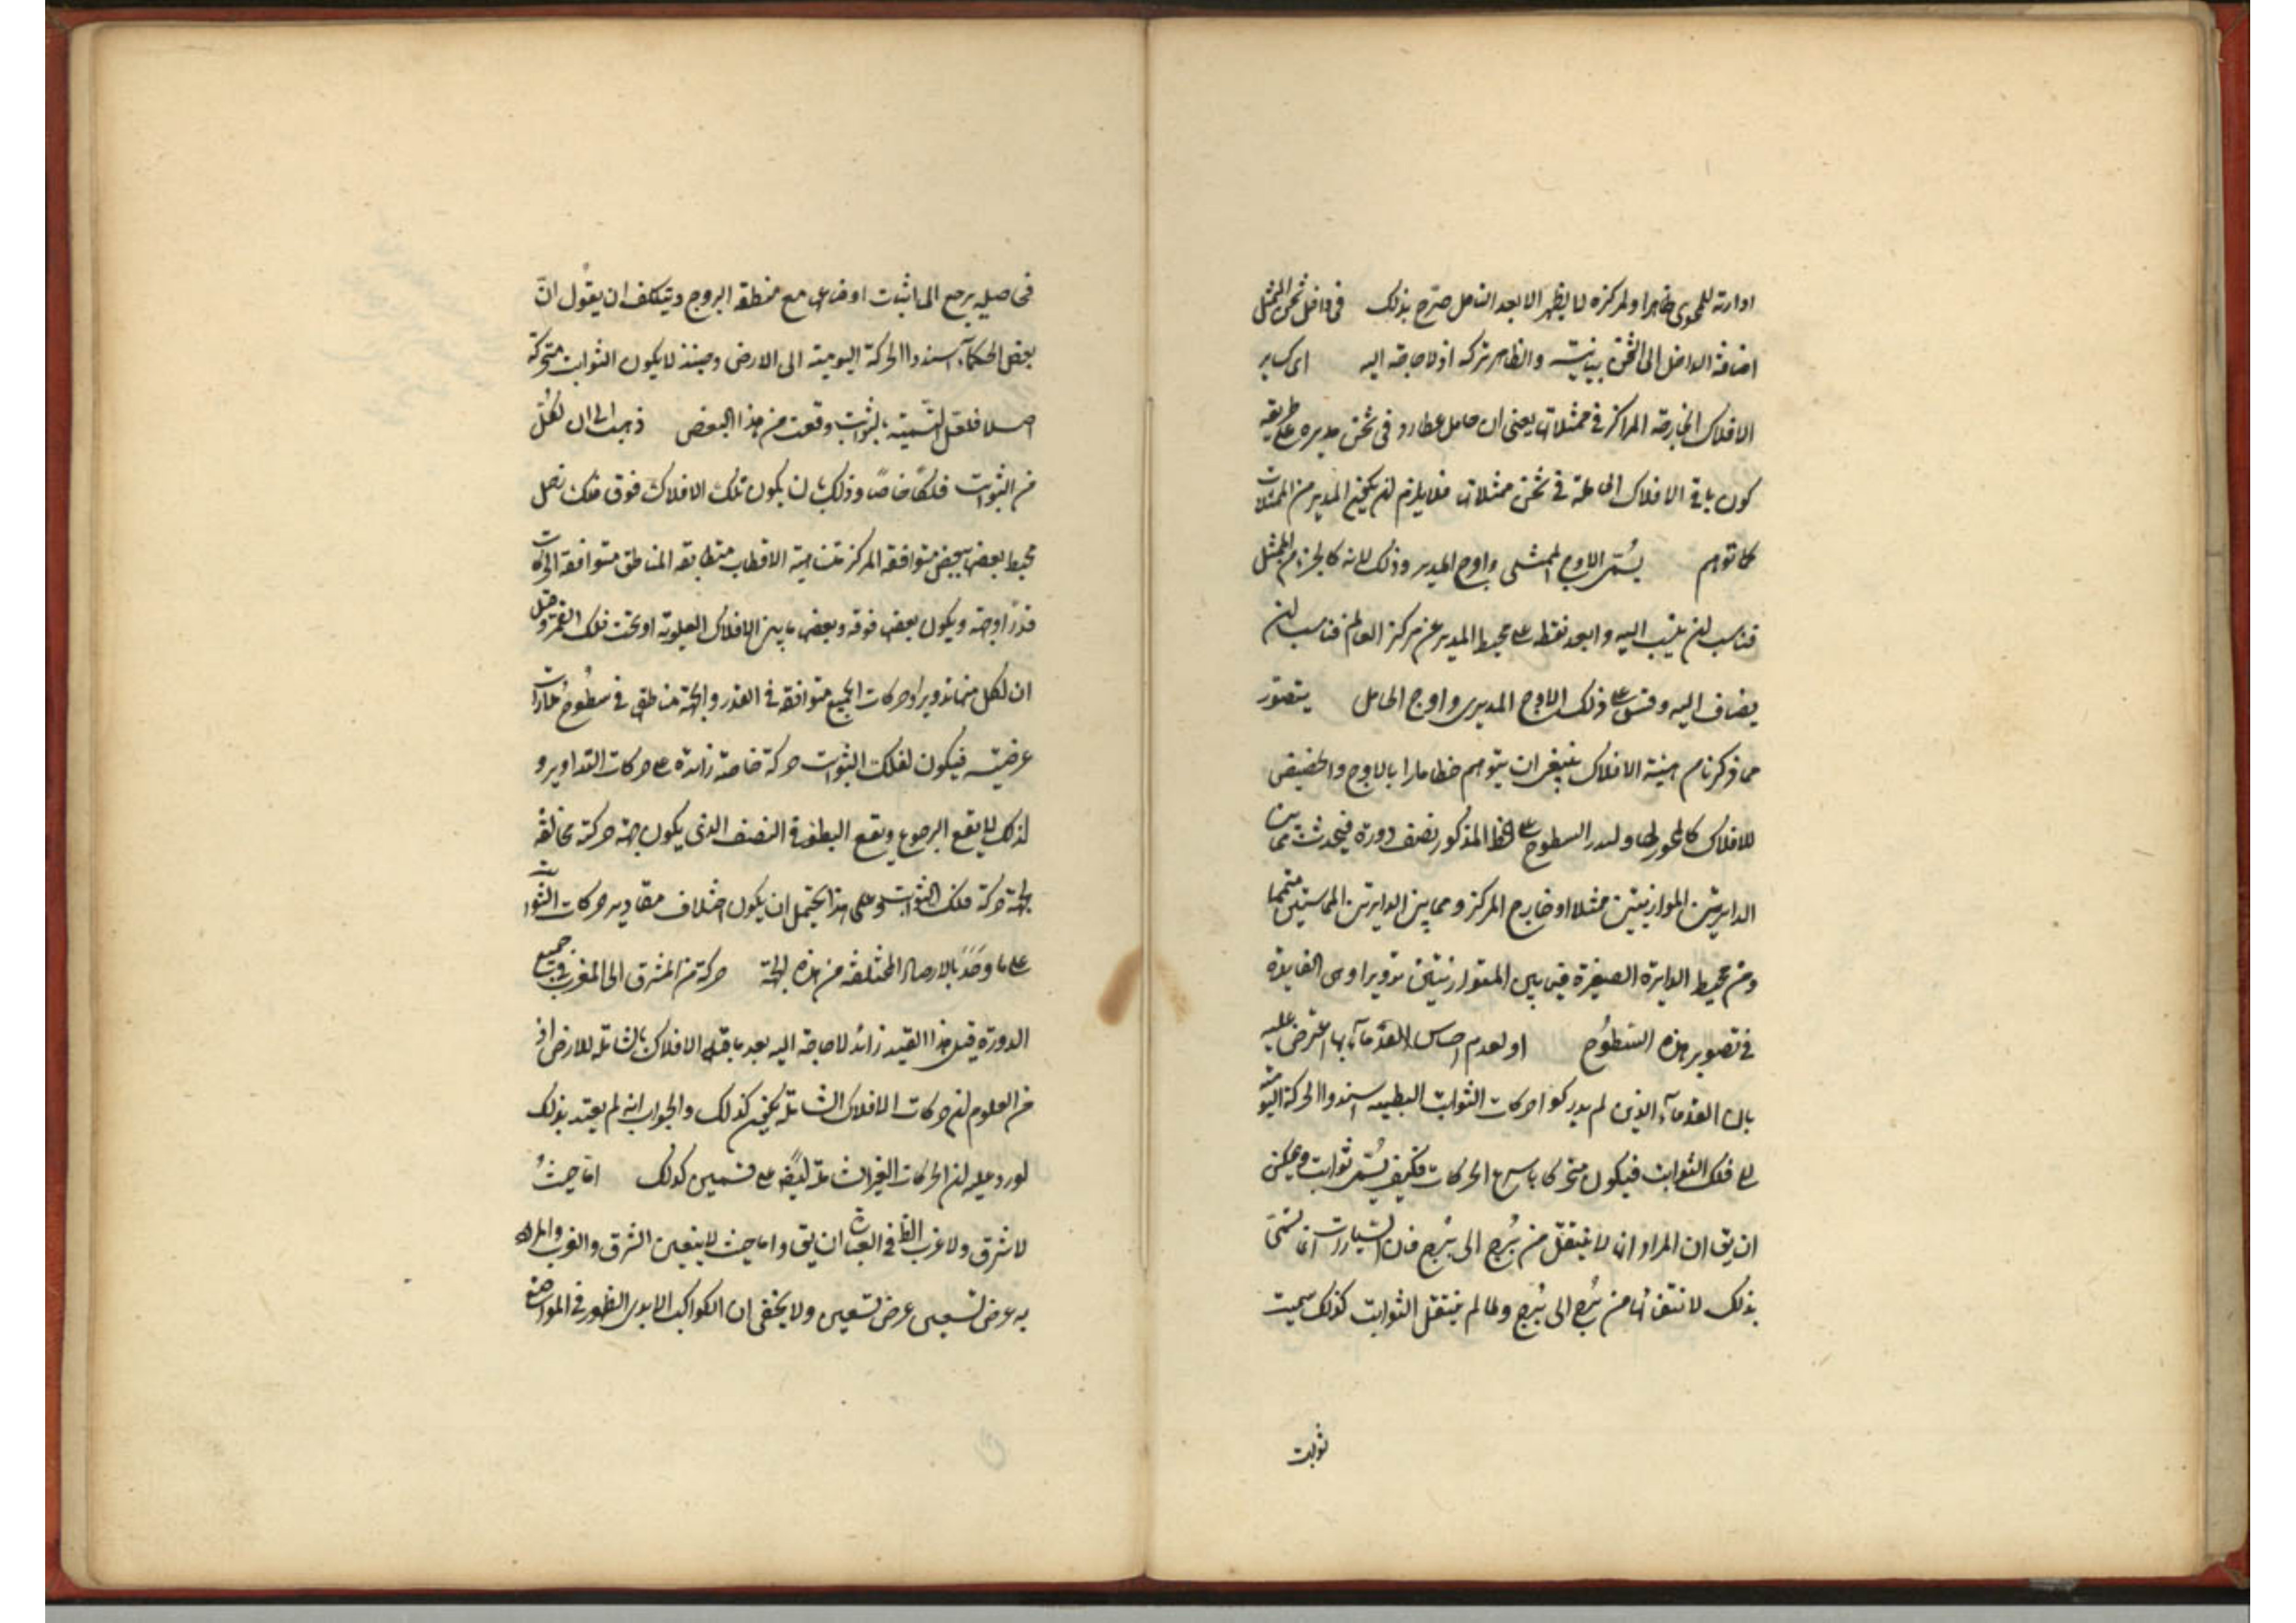 ادارته للمحوى ظاهرا ولمركزه لا يظهر الا بعد التامل صرح بذلك في داخل ثخن الممثل
اضافة الداخل الى الثخن بيانية والظاهر تركه اذ لا حاجة اليه اى كساير
الافلاك الخارجة المراكز في ممثلاتها يعنى ان حامل عطارد في ثخن مديره على طريقه
كون باقي الافلاك الحاملة في ثخن ممثلاتها فلا يلزم ان يكون المدير من الممثلات
كما توهم يسمى الاوج الممثلى واوج المدير وذلك لانه كالجزء من الممثل
فناسب ان ينسب اليه وابعد نقطة على محيط المدير عن مركز العالم فناسب ان
يضاف اليه وقس على ذلك الاوج المديرى واوج الحامل يتصور
مما ذكرنا هيئة الافلاك ينبغى ان يتوهم خطا مارا بالاوج والحضيض
للافلاك كالمحور لها ولتدر السطوح على الخط المذكور نصف دورة فيحدث مما بين
الدايرتين المتوازيتين ممثلا او خارج المركز ومما بين الدايرتين المتماستين متمما
ومن محيط الدايرة الصغيرة فيما بين المتوازيتين تدويرا وهى الفايدة
في تصوير هذه السطوح او لعدم احساس القدمآء بها اعترض عليه
بان القدمآء الذين لم يدركوا حركات الثوابت البطيئة اسندوا الحركة اليومية
الى فلك الثوابت فيكون متحركا باسرع الحركات فكيف يسمى ثوابت ويمكن
ان يق ان المراد انها لا ينتقل من برج الى برج فان السيارات انما تسمى
بذلك لانتقالها من برج الى برج ولما لم ينتقل الثوابت كذلك سميت
ثوابت
فحاصله يرجع الى اثبات اوضاعها مع منطقة البروج ويتكلف ان يقول ان
بعض الحكمآء اسندوا الحركة اليومية الى الارض وحينئذ لا يكون الثوابت متحركة
اصلا فلعل التسمية بالثوابت وقعت من هذا البعض ذهبت الى ان لكل
من الثوابت فلكا خاصا وذلك بان يكون تلك الافلاك فوق فلك زحل
محيط بعضها ببعض متوافقة المركز متسامتة الاقطاب متطابقة المناطق متوافقة الحركات
قدرا وجهة ويكون بعضها فوقه وبعضها ما بين الافلاك العلوية او تحت فلك القمر وقيل
ان لكل منها تدويرا وحركات الجميع متوافقة في القدر والجهة مناطقها في سطوح مدارات
عرضية فيكون لفلك الثوابت حركة خاصة زائدة على حركات التداوير و
لذلك لا يقع الرجوع ويقع البطؤ في النصف الذى يكون جهة حركته مخالفة
لجهة حركة فلك الثوابت وعلى هذا يحتمل ان يكون اختلاف مقادير حركات الثوابت
على ما وجد بالارصاد المختلفة من هذه الجهة حركة من المشرق الى المغرب في جميع
الدورة قيل هذا القيد زائد لا حاجة اليه بعد ما قيد الافلاك بالشاملة للارض اذ
من المعلوم ان حركات الافلاك الشاملة يكون كذلك والجواب انه لم يعتد بذلك
لورد عليه ان الحركات الغير الشاملة ايضا على قسمين كذلك اما حيث
لا شرق ولا غرب الظ في العبارة ان يق واما حيث لا يتعين الشرق والغرب والمراد
به عرض تسعين عرض تسعين ولا يخفى ان الكواكب الابدى الظهور في المواضع